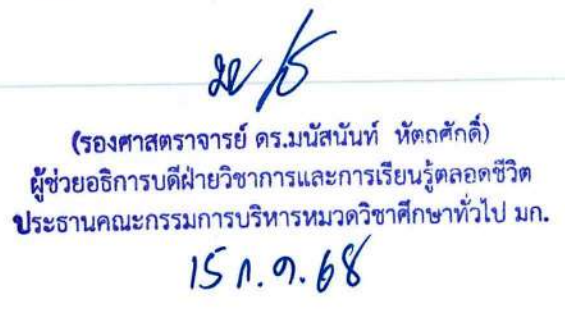 (รองศาสตราจารย์ ดร.มนัสนันท์ หัตถศักดิ์)
ผู้ช่วยอธิการบดีฝ่ายวิชาการและการเรียนรู้ตลอดชีวิต
ประธานคณะกรรมการบริหารหมวดวิชาศึกษาทั่วไป มก.
15 ก.ค. 68